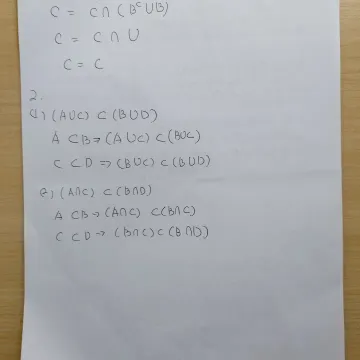 C = C∩(Bᶜ∪B)
C = C∩U
C = C
2.
(1) (A∪C) ⊂ (B∪D)
A ⊂ B → (A∪C) ⊂ (B∪C)
C ⊂ D ⇒ (B∪C) ⊂ (B∪D)
2) (A∩C) ⊂ (B∩D)
A ⊂ B → (A∩C) ⊂ (B∩C)
C ⊂ D → (B∩C) ⊂ (B∩D)